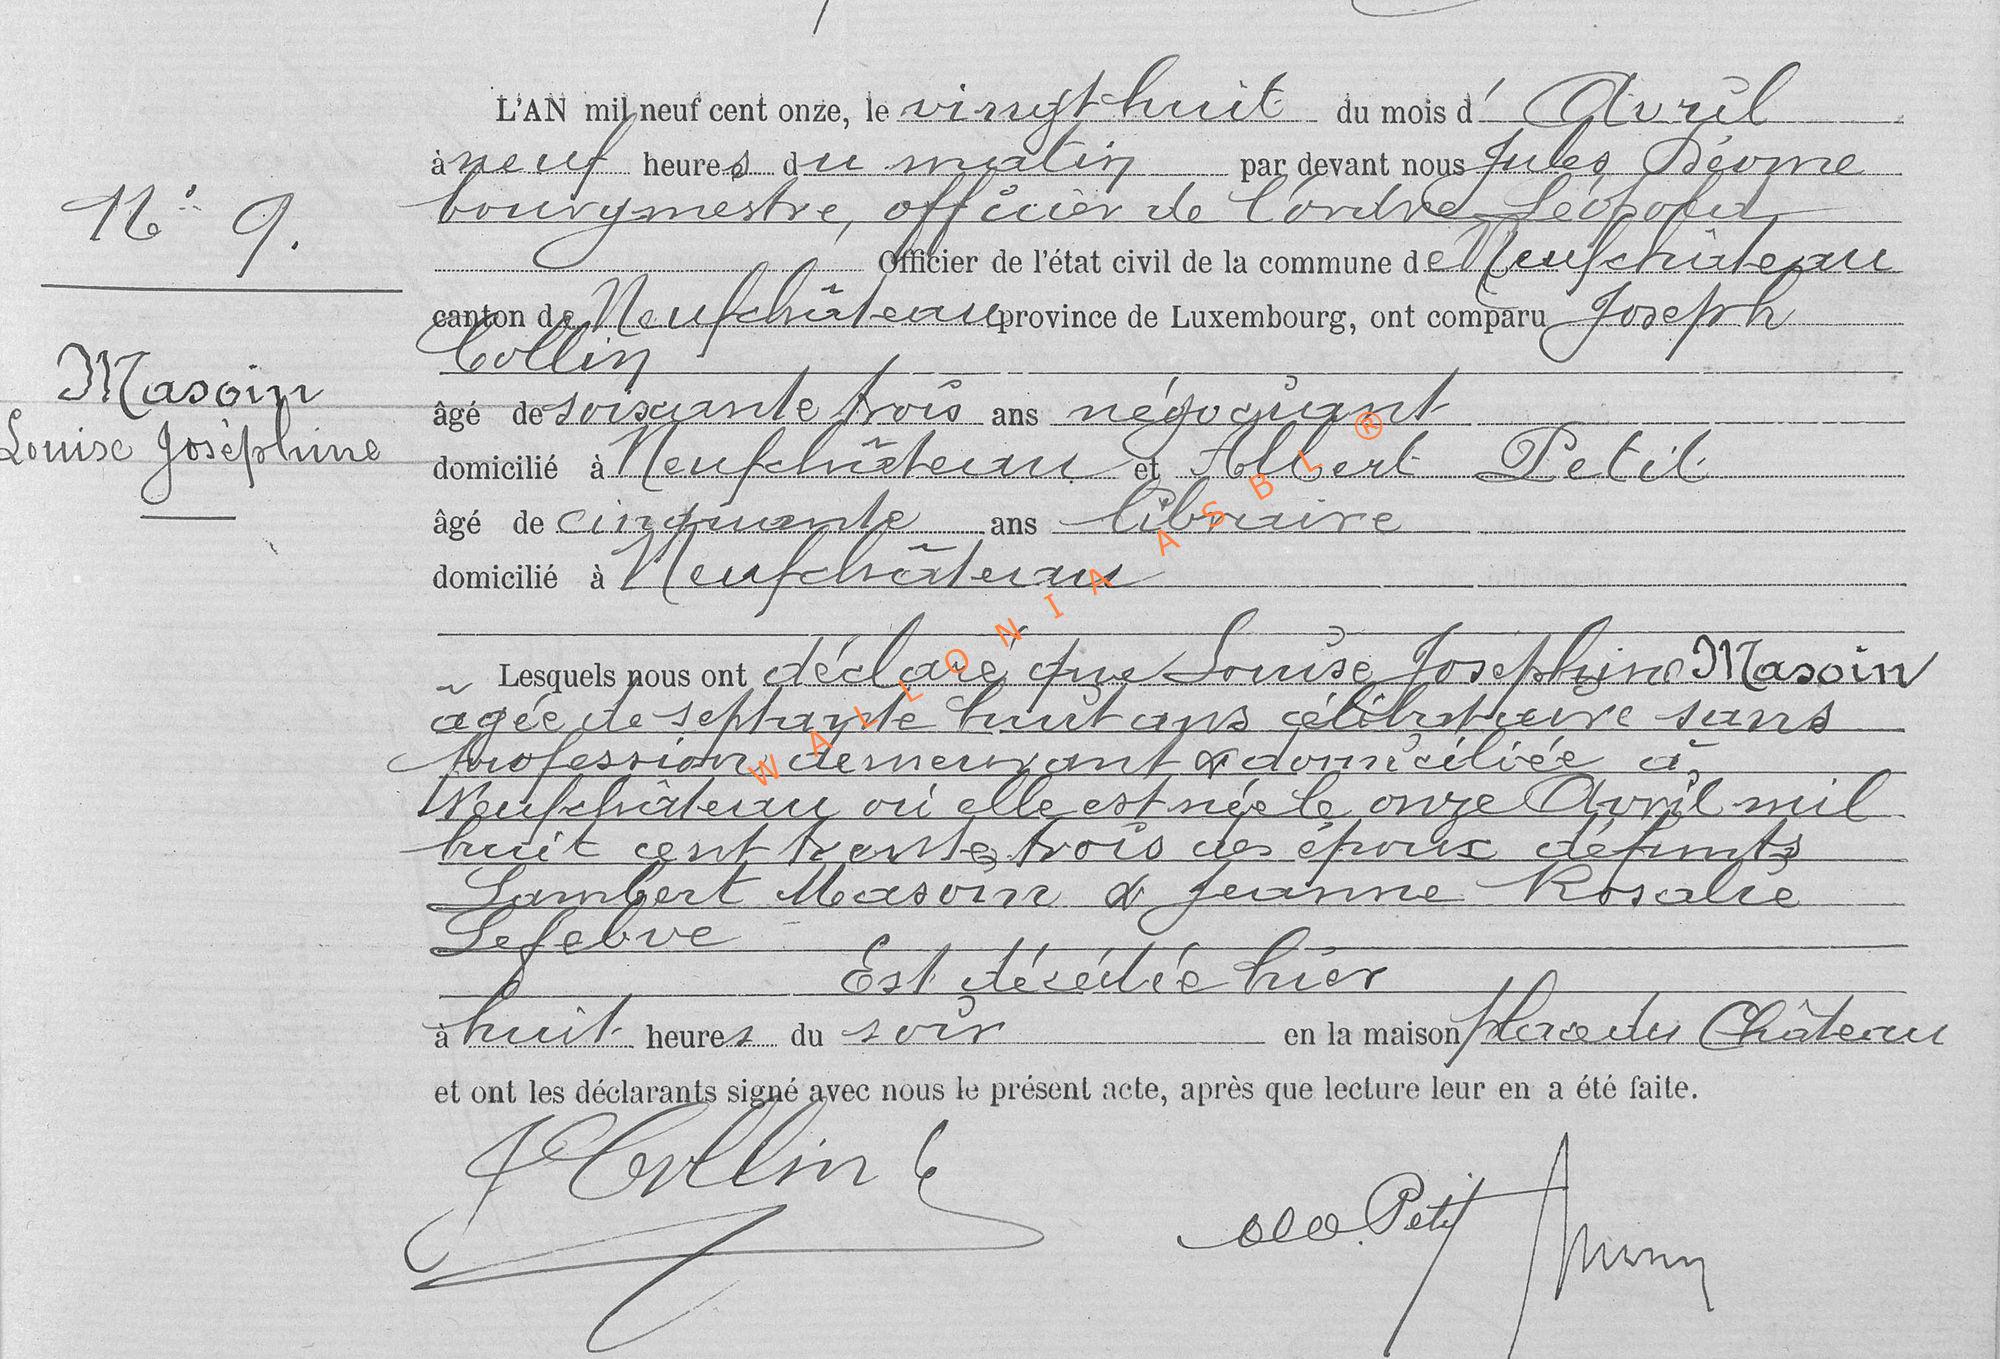 L'AN mil neuf cent onze, le vingt huit du mois d' Avril
à neuf heures du matin par devant nous Jules Déome
bourgmestre, officier de l'ordre Léopold
N° 9.
Officier de l'état civil de la commune de Neufchâteau
canton de Neufchâteau province de Luxembourg, ont comparu Joseph
Collin
Masoin
Louise Joséphine
âgé de soixante trois ans négociant
domicilié à Neufchâteau et Albert Petit
âgé de cinquante ans libraire
domicilié à Neufchâteau
WALLONIA ASBL ®
Lesquels nous ont déclaré que Louise Joséphine Masoin
âgée de septante huit ans célibataire sans
profession demeurant & domiciliée à
Neufchâteau où elle est née le onze Avril mil
huit cent trente trois des époux défunts
Lambert Masoin & Jeanne Rosalie
Lefebvre
Est décédée hier
à huit heures du soir en la maison place du Château
et ont les déclarants signé avec nous le présent acte, après que lecture leur en a été faite.
J Collin
Petit